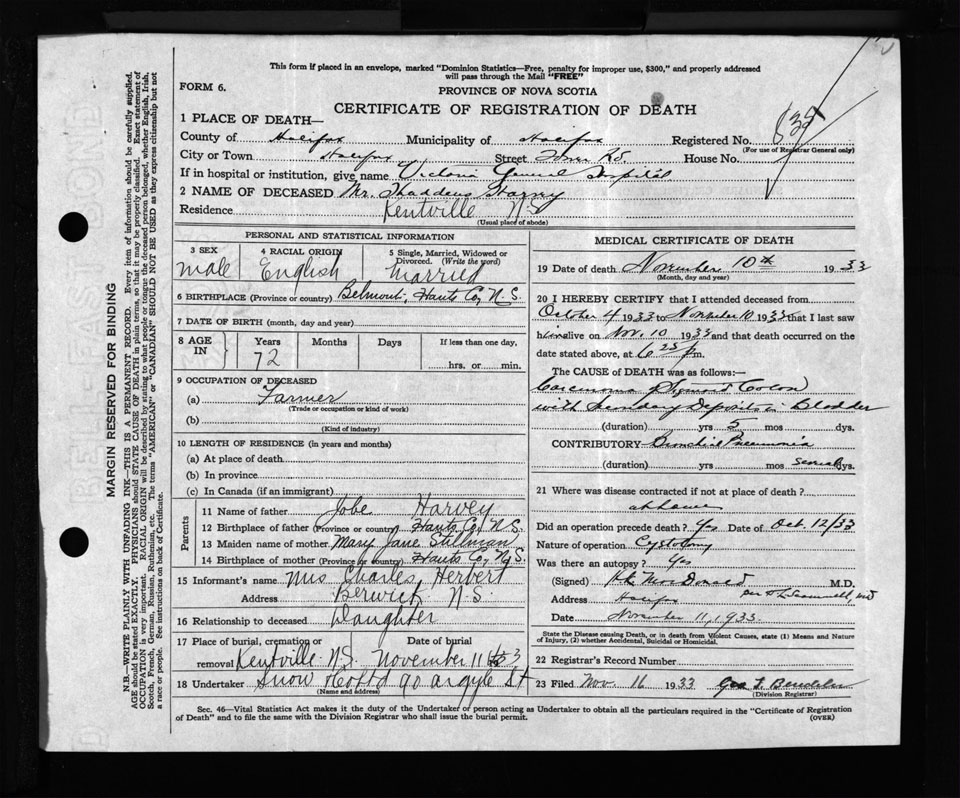 This form if placed in an envelope, marked "Dominion Statistics—Free, penalty for improper use, $300," and properly addressed
will pass through the Mail "FREE"
FORM 6.
PROVINCE OF NOVA SCOTIA
CERTIFICATE OF REGISTRATION OF DEATH
1 PLACE OF DEATH—
County of Halifax Municipality of Halifax Registered No.
(For use of Registrar General only)
City or Town Halifax Street Tower Rd House No.
If in hospital or institution, give name Victoria General Hospital
2 NAME OF DECEASED Mr. Thaddeus Harvey
Residence Kentville N.S.
(Usual place of abode)
PERSONAL AND STATISTICAL INFORMATION
3 SEX 4 RACIAL ORIGIN 5 Single, Married, Widowed or Divorced. (Write the word)
male English Married
6 BIRTHPLACE (Province or country) Belmont, Hants Co, N.S.
7 DATE OF BIRTH (month, day and year)
8 AGE IN Years Months Days If less than one day,
72 hrs. or min.
9 OCCUPATION OF DECEASED
(a) Farmer
(Trade or occupation or kind of work)
(b)
(Kind of industry)
10 LENGTH OF RESIDENCE (in years and months)
(a) At place of death
(b) In province
(c) In Canada (if an immigrant)
Parents
11 Name of father Jobe Harvey
12 Birthplace of father (Province or country) Hants Co, N.S.
13 Maiden name of mother Mary Jane Stillman
14 Birthplace of mother (Province or country) Hants Co, N.S.
15 Informant's name Mrs Charles Herbert
Address Berwick N.S.
16 Relationship to deceased Daughter
17 Place of burial, cremation or Date of burial
removal Kentville N.S. November 11
18 Undertaker Snow & Co Ltd 90 Argyle St
(Name and address)
MEDICAL CERTIFICATE OF DEATH
19 Date of death November 10th 1933
(Month, day and year)
20 I HEREBY CERTIFY that I attended deceased from
October 4 1933 to November 10 1933 that I last saw
him alive on Nov. 10 1933 and that death occurred on the
date stated above, at 6 25 p m.
The CAUSE of DEATH was as follows:—
Carcinoma Sigmoid Colon
with Secondary Deposits in Bladder
(duration) yrs 5 mos dys.
CONTRIBUTORY Bronchial Pneumonia
(duration) yrs mos several dys.
21 Where was disease contracted if not at place of death?
at home
Did an operation precede death? Yes Date of Oct. 12/33
Nature of operation Cystotomy
Was there an autopsy? Yes
(Signed) MacDonald M.D.
Address Halifax
Date November 11, 1933.
State the Disease causing Death, or in death from Violent Causes, state (1) Means and Nature
of Injury, (2) whether Accidental, Suicidal or Homicidal.
22 Registrar's Record Number
23 Filed Nov. 16 1933 Geo
(Division Registrar)
Sec. 46—Vital Statistics Act makes it the duty of the Undertaker or person acting as Undertaker to obtain all the particulars required in the "Certificate of Registration
of Death" and to file the same with the Division Registrar who shall issue the burial permit.
(OVER)
MARGIN RESERVED FOR BINDING
N.B.—WRITE PLAINLY WITH UNFADING INK—THIS IS A PERMANENT RECORD. Every item of information should be carefully supplied.
AGE should be stated EXACTLY. PHYSICIANS should STATE CAUSE OF DEATH in plain terms, so that it may be properly classified. Exact statement of
OCCUPATION is very important. RACIAL ORIGIN will be described by stating to what people or tongue the deceased person belonged, whether English, Irish,
Scotch, French, German, Russian, Ruthenian, etc. The terms "AMERICAN" or "CANADIAN" SHOULD NOT BE USED as they express citizenship but not
a race or people. See instructions on back of Certificate.